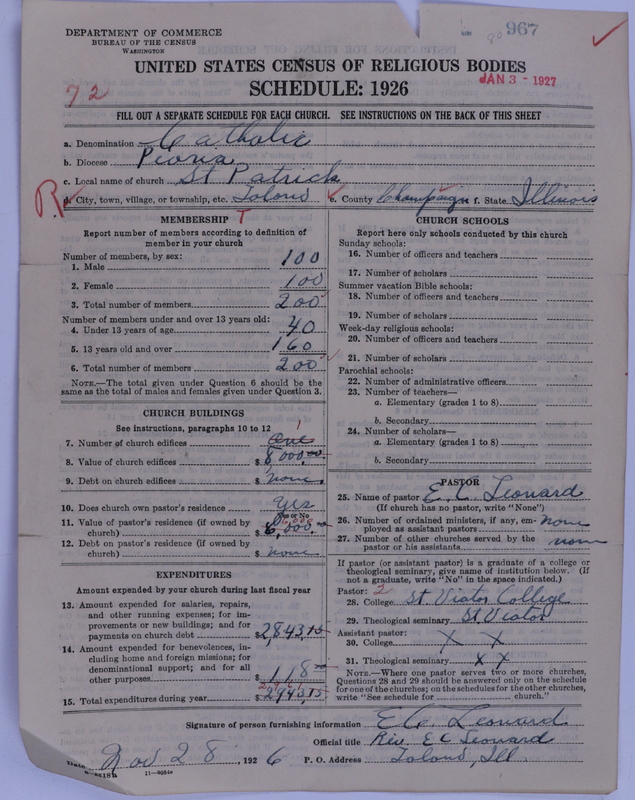 DEPARTMENT OF COMMERCE
BUREAU OF THE CENSUS
WASHINGTON
967
UNITED STATES CENSUS OF RELIGIOUS BODIES
JAN 3 - 1927
SCHEDULE: 1926
72
FILL OUT A SEPARATE SCHEDULE FOR EACH CHURCH. SEE INSTRUCTIONS ON THE BACK OF THIS SHEET
a. Denomination Catholic
b. Diocese Peoria
c. Local name of church St Patrick
R
d. City, town, village, or township, etc. Tolono e. County Champaign f. State Illinois
MEMBERSHIP T
Report number of members according to definition of
member in your church
Number of members, by sex:
1. Male 100
2. Female 100
3. Total number of members 200
Number of members under and over 13 years old:
4. Under 13 years of age 40
5. 13 years old and over 160
6. Total number of members 200
NOTE.—The total given under Question 6 should be
same as the total of males and females given under Question 3.
CHURCH BUILDINGS
See instructions, paragraphs 10 to 12
7. Number of church edifices one 1
8. Value of church edifices $ 8,000.00
9. Debt on church edifices $ none
10. Does church own pastor's residence Yes
Yes or No
11. Value of pastor's residence (if owned by
church) $ 6,000.00
12. Debt on pastor's residence (if owned by
church) $ none
EXPENDITURES
Amount expended by your church during last fiscal year
13. Amount expended for salaries, repairs,
and other running expenses; for im-
provements or new buildings; and for
payments on church debt $ 2,843.15
14. Amount expended for benevolences, in-
cluding home and foreign missions; for
denominational support; and for all
other purposes 118
15. Total expenditures during year $ 2,943.15
CHURCH SCHOOLS
Report here only schools conducted by this church
Sunday schools:
16. Number of officers and teachers
17. Number of scholars
Summer vacation Bible schools:
18. Number of officers and teachers
19. Number of scholars
Week-day religious schools:
20. Number of officers and teachers
21. Number of scholars
Parochial schools:
22. Number of administrative officers
23. Number of teachers—
a. Elementary (grades 1 to 8)
b. Secondary
24. Number of scholars—
a. Elementary (grades 1 to 8)
b. Secondary
PASTOR
25. Name of pastor E. C. Leonard
(If church has no pastor, write "None")
26. Number of ordained ministers, if any, em-
ployed as assistant pastors none
27. Number of other churches served by the
pastor or his assistants none
If pastor (or assistant pastor) is a graduate of a college or
theological seminary, give name of institution below. (If
not a graduate, write "No" in the space indicated.)
Pastor: 2
28. College St Viator College
29. Theological seminary St Viator
Assistant pastor:
30. College X X
31. Theological seminary X X
NOTE.—Where one pastor serves two or more churches,
Questions 28 and 29 should be answered only on the schedule
for one of the churches; on the schedules for the other churches,
write "See schedule for church."
Signature of person furnishing information E C Leonard
Official title Rev. E C Leonard
Date Nov 28, 1926 P. O. Address Tolono, Ill.